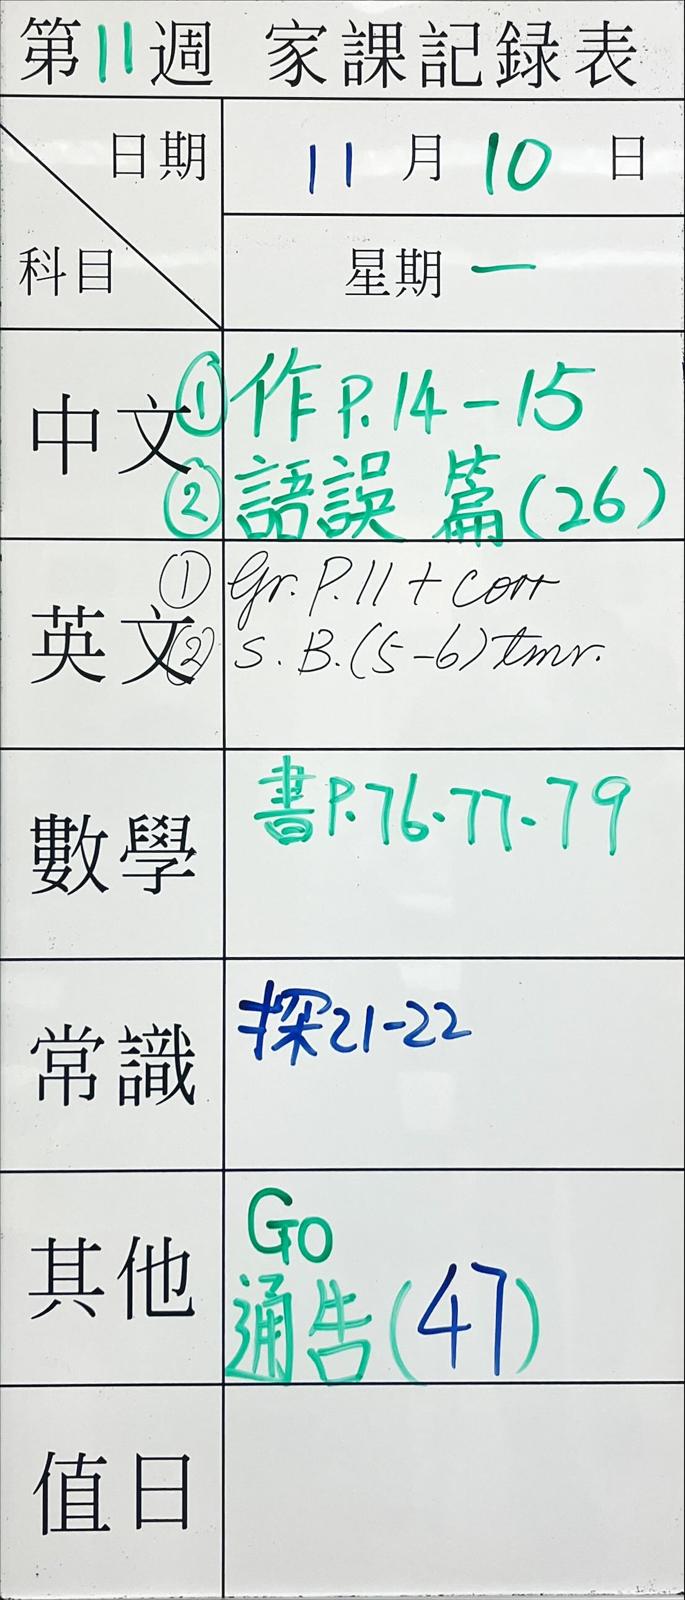 第11週 家課記録表
日期
11 月 10 日
科目
星期 一
中文
① 作 P.14-15
② 語誤 篇(26)
英文
① Gr. P.11 + corr
② S. B. (5-6) tmr.
數學
書P.76.77.79
常識
探21-22
其他
Go
通告(47)
值日